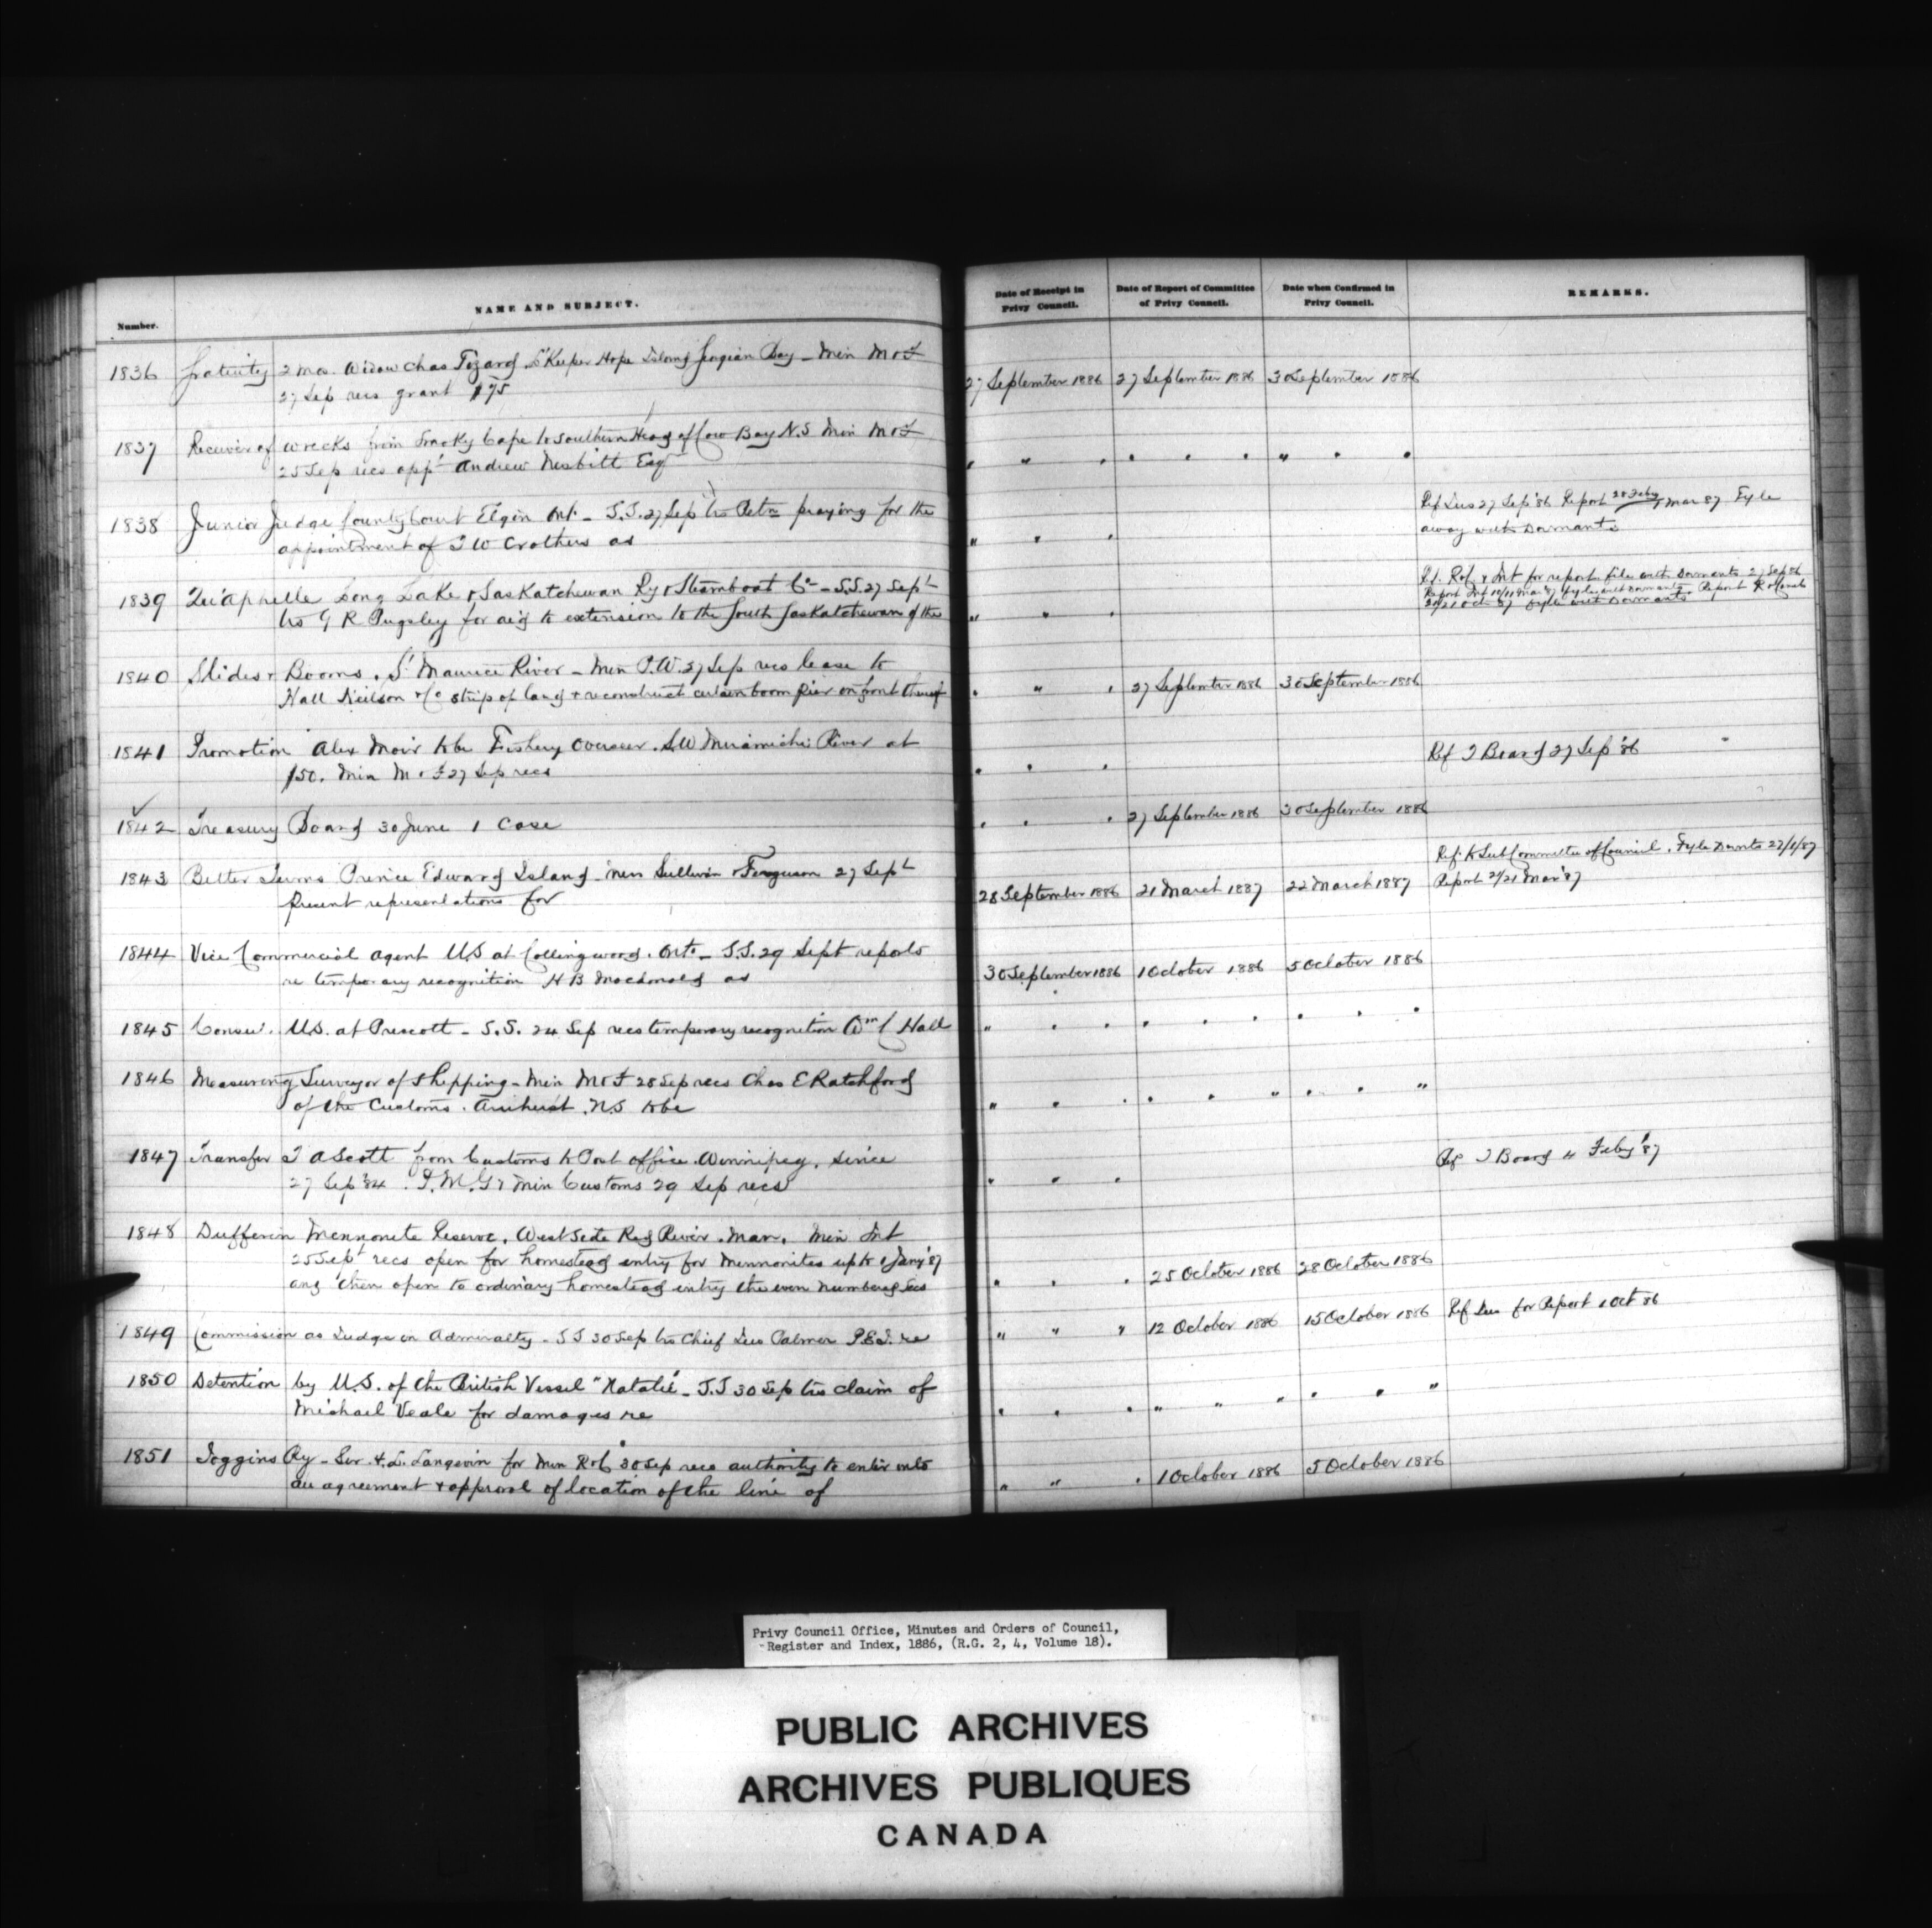 Number.
NAME AND SUBJECT.
Date of Receipt in Privy Council.
Date of Report of Committee of Privy Council.
Date when Confirmed in Privy Council.
REMARKS.
1836 Gratuity 2 mos. Widow Chas Tizard Lt Keeper Hope Island Georgian Bay - Min M & F
27 Sep recs grant $75
27 September 1886 27 September 1886 30 September 1886
1837 Receiver of wrecks from Smoky Cape to Southern Head of Cow Bay N.S Min M & F
25 Sep recs appt Andrew Nesbitt Esq
" " " " " " " " "
1838 Junior Judge County Court Elgin Ont - S.S. 27 Sep trs Petn praying for the
appointment of T W Crothers as
" " "
Ref Jus 27 Sep '86 Report 28 Feby/1 Mar 87 Fyle
away with Dormants
1839 Qu'Appelle Long Lake & Saskatchewan Ry & Steamboat Co - S.S. 27 Sept
trs G R Pugsley for aid to extension to the South Saskatchewan of the
" " "
Ref. R & C & Int for report. file with Dormants 27 Sep 86
Report Int 10/11 Mar 87 fyle with Dormants Report R & Canals
20/21 Oct 87 fyle with Dormants
1840 Slides & Booms, St Maurice River - Min P.W. 27 Sep recs lease to
Hall Neilson & Co strip of land & reconstruct certain boom pier on front thereof
" " " 27 September 1886 30 September 1886
1841 Promotion Alex Moir to be Fishery Overseer. S.W Miramichi River at
$50. Min M & F 27 Sep recs
" " "
Ref T Board 27 Sep '86
1842 Treasury Board 30 June 1 Case
" " " 27 September 1886 30 September 1886
1843 Better Terms Prince Edward Island - Mess Sullivan & Ferguson 27 Sept
present representations for
28 September 1886 21 March 1887 22 March 1887
Ref. to Sub Committee of Council. Fyle Dormts 27/1/87
Report 2/21 Mar '87
1844 Vice Commercial Agent U.S at Collingwood. Ont. - S.S. 29 Sept reports
re temporary recognition H B Macdonald as
30 September 1886 1 October 1886 5 October 1886
1845 Consul. U.S. at Prescott - S.S. 24 Sep recs temporary recognition Wm C Hall
" " " " " " " " "
1846 Measuring Surveyor of Shipping - Min M & F 28 Sep recs Chas E Ratchford
of the Customs. Amherst. N.S to be
" " " " " " " " "
1847 Transfer T A Scott from Customs to Post Office. Winnipeg. since
27 Sep '84. P.M.G & Min Customs 29 Sep recs
" " "
Ref T Board 4 Feby '87
1848 Dufferin Mennonite Reserve, West Side Red River. Man. Min Int
25 Sept recs open for homestead entry for Mennonites up to 1 Jany '87
and then open to ordinary homestead entry the even numbered Secs
" " " 25 October 1886 28 October 1886
1849 Commission as Judge in Admiralty - S S 30 Sep trs Chief Jus Palmer P.E.I. re
" " " 12 October 1886 15 October 1886 Ref Jus for Report 1 Oct 86
1850 Detention by U.S. of the British Vessel "Natalie" - S.S 30 Sep trs claim of
Michael Veale for damages re
" " " " " " " " "
1851 Joggins Ry - Sir H. L. Langevin for Min R & C 30 Sep recs authority to enter into
an agreement & approval of location of the line of
" " " 1 October 1886 5 October 1886
Privy Council Office, Minutes and Orders of Council,
Register and Index, 1886, (R.G. 2, 4, Volume 18).
PUBLIC ARCHIVES
ARCHIVES PUBLIQUES
CANADA